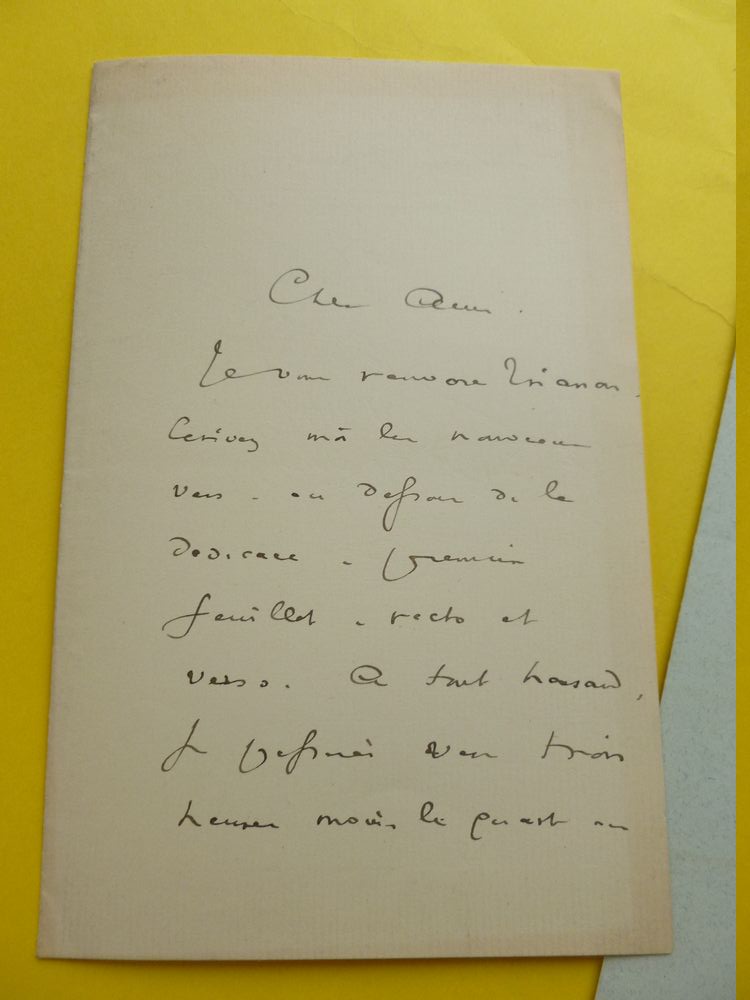 Cher Ami.
Je vous renvoie Trianon.
Ecrivez moi les nouveaux
vers - au dessous de la
dédicace - premier
feuillet - recto et
verso. A tout hasard,
je passerai vers trois
heures moins le quart ou